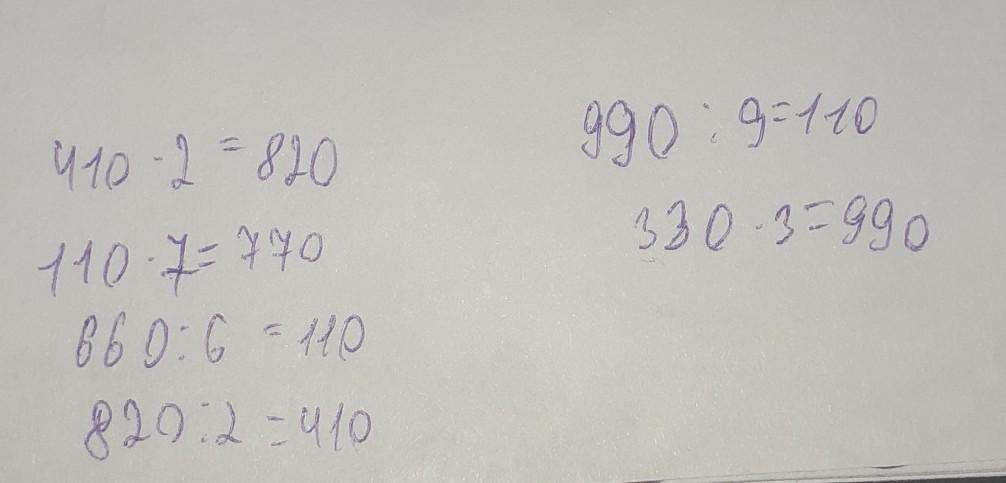 410 · 2 = 820
110 · 7 = 770
660 : 6 = 110
820 : 2 = 410
990 : 9 = 110
330 · 3 = 990